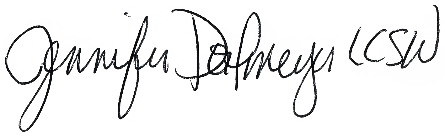 Jennifer Dalmeyer LCSW